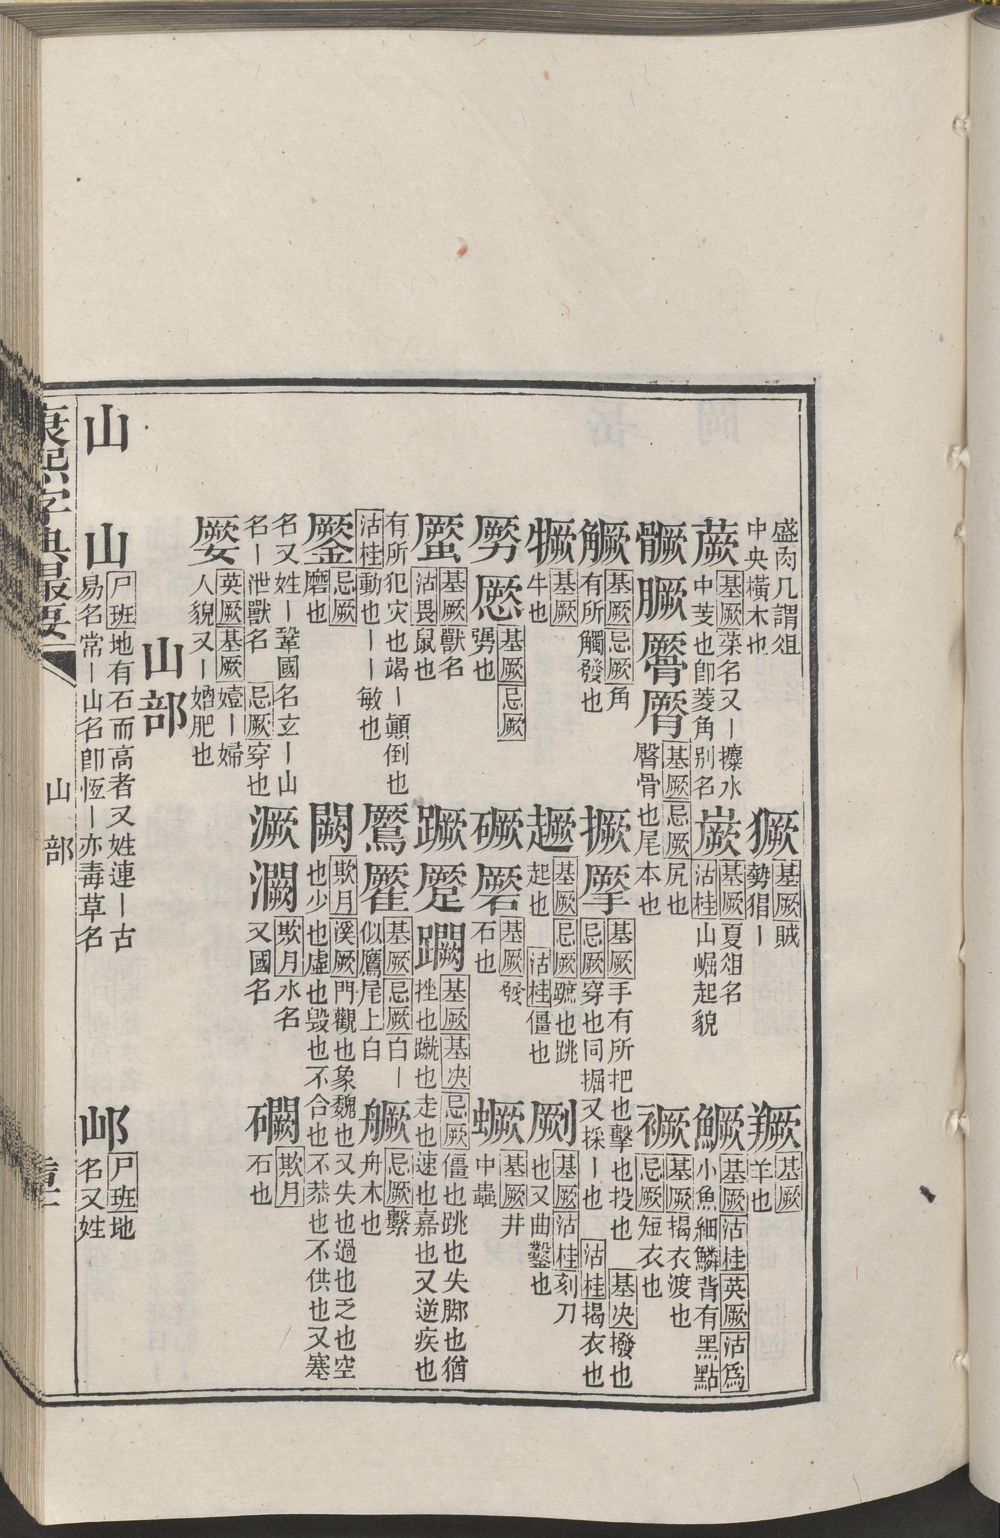 盛肉几謂俎
中央橫木也
蕨 基厥菜名又丨攗水
中芰也卽菱角別名
髋臋
基厥忌厥尻也
臀骨也尾本也
觼 基厥忌厥角
有所觸發也
基厥
牛也
基厥忌厥
勥也
蟨 基厥獸名
沽畏鼠也
有所犯灾也竭丨顛倒也
沽桂動也丨丨敏也
忌厥
磨也
名又姓丨鞏國名玄丨山
名丨泄獸名 忌厥穿也
嬮 英厥基厥嬄丨婦
人貌又丨媨肥也
山部
獗 基厥賊
勢猖丨
嶡 基厥夏俎名
沽桂山崛起貌
撅 基厥手有所把也擊也投也 基决撥也
忌厥穿也同掘又採丨也 沽桂揭衣也
基厥忌厥蹠也跳
起也 沽桂僵也
基厥發
石也
蹶 基厥基决忌厥僵也跳也失脚也猶
挫也蹴也走也速也嘉也又逆疾也
鷢 基厥忌厥白丨
似鷹尾上白
闕 欺月溪厥門觀也象魏也又失也過也乏也空
也少也虛也毀也不合也不恭也不供也又塞
欺月水名
又國名
基厥
羊也
鱖 基厥沽桂英厥沽爲
小魚細鱗背有黑點
基厥揭衣渡也
忌厥短衣也
劂 基厥沽桂刻刀
也又曲鑿也
基厥井
中蟲
忌厥繫
舟木也
欺月
石也
山
山 尸班地有石而高者又姓連丨古
易名常丨山名卽恆丨亦毒草名
邖 尸班地
名又姓
康熙字典最要
山部